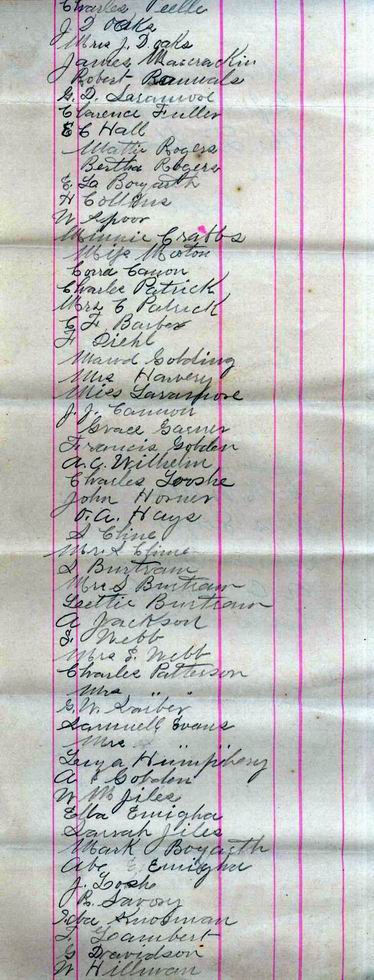 Charles Peelle
J D Oaks
Mrs J. D. oaks
James Maccrackin
Robert
G. D. Laramore
Clarence Fuller
E C Hall
Mattie Rogers
Bertha Rogers
E. La Bogarth
H Collins
W Spoor
Minnie Crabbs
Miss Morton
Cora Canon
Charles Patrick
Mrs C Patrick
C. F. Barber
F Diehl
Maud Golding
Mrs Harvery
Miss Laramore
J. J. Cannon
Grace Garner
Francis Golden
A. G. Wilhelm
Charles Looshe
John Horner
O. A. Hays
S Cline
Mrs S Cline
S Burtram
Mrs S Burtram
Lettie Burtram
A Jackson
F. Webb
Mrs F. Webb
Charles Patterson
Mrs " "
G. W. Barber
Samuell Evans
Mrs " "
Humphery
A Golden
W M Jiles
Ella Emigha
Sarrah Jiles
Mark Bogarth
Abe E. Emigha
J. Loshe
B. Savory
Eda Knosman
F. Leambert
G Davidson
W Hillman